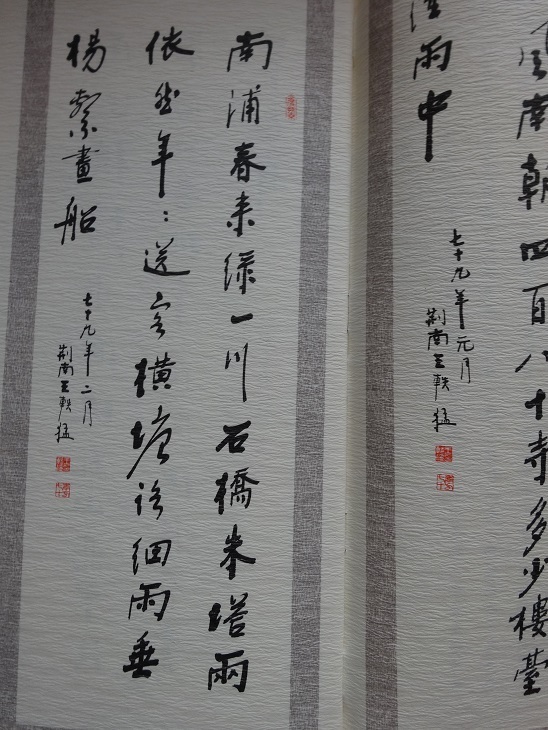 風南朝四百八十寺多少樓臺
雨中
七十九年元月
荆南王軼猛
南浦春来綠一川石橋朱塔兩
依然年：送客橫塘路細雨垂
楊繫畫船
七十九年二月
荆南王軼猛